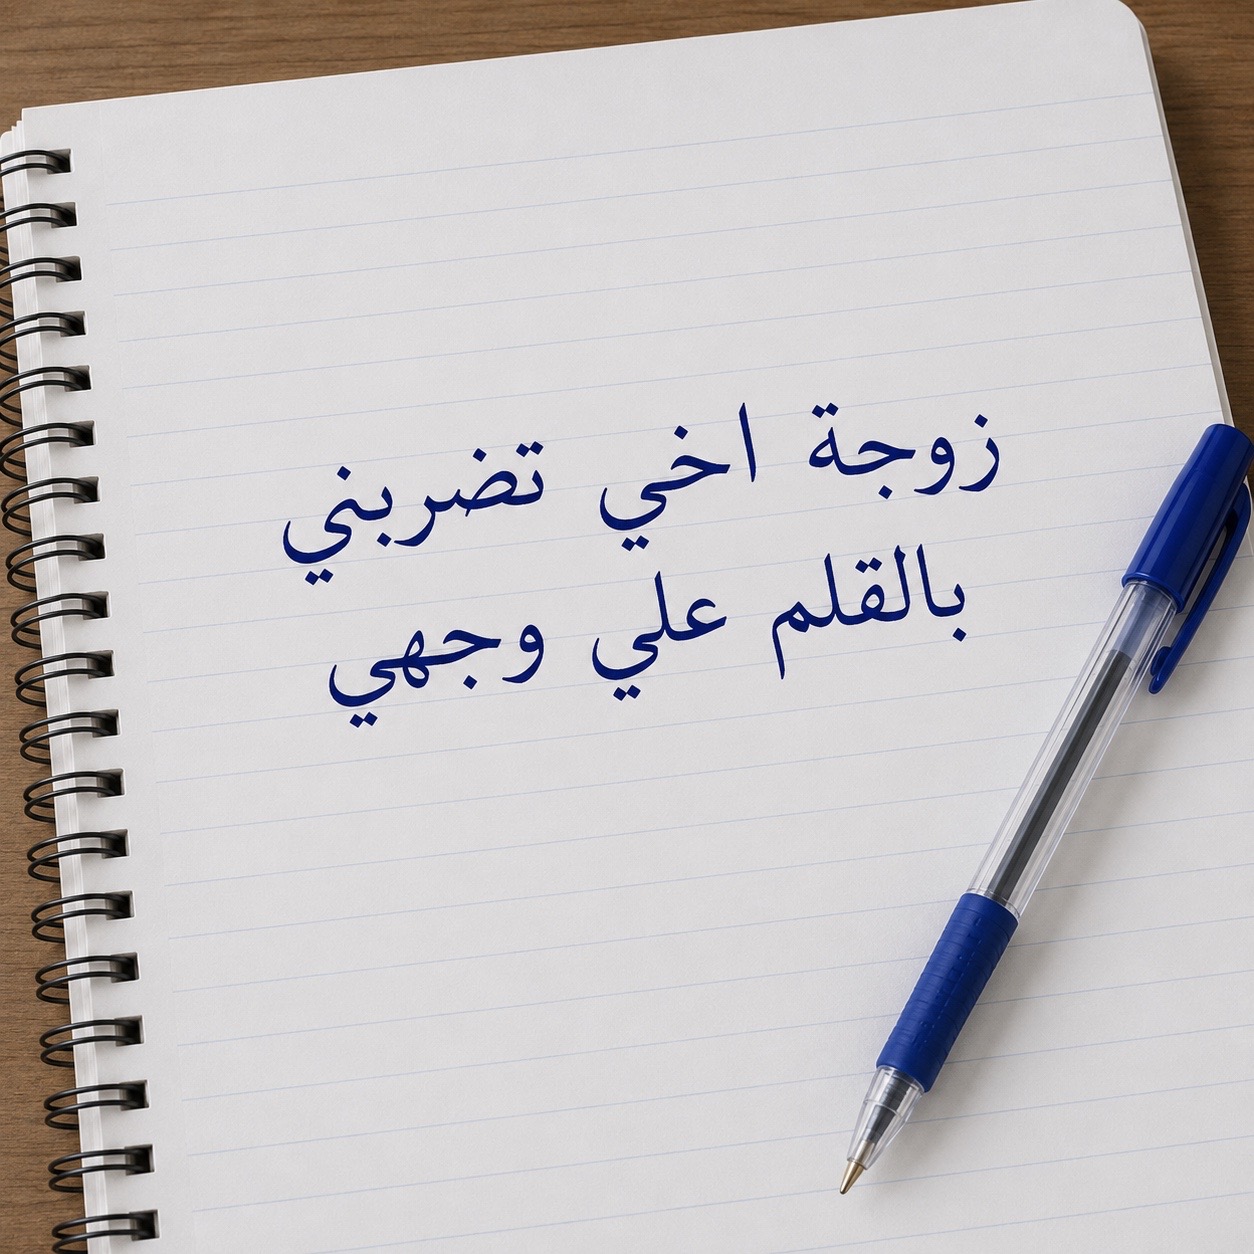 زوجة اخي تضربني
بالقلم علي وجهي